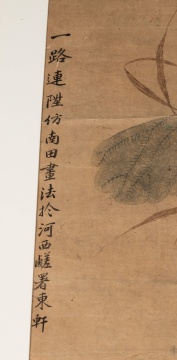 一路連陞仿南田畫法於河西鹺署東軒